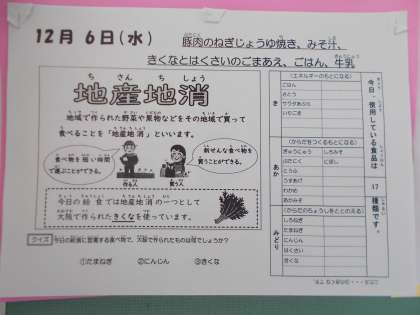 12月 6日(水)
豚肉のねぎじょうゆ焼き、みそ汁、
きくなとはくさいのごまあえ、ごはん、牛乳
ち さん ち しょう
地産地消
地域で作られた野菜や果物などをその地域で買って
食べることを「地産地消」といいます。
食べ物を短い時間
で運ぶことができる。
新せんな食べ物を
買うことができる。
作る人
買う人
今日の給食では地産地消の一つとして
大阪で作られたきくなを使っています。
クイズ
今日の給食に登場する食べ物で、大阪で作られたものは何でしょうか?
①たまねぎ ②にんじん ③きくな
今日、使用している食品は
17
種類です。
き
(エネルギーのもとになる)
ごはん
さとう
サラダあぶら
いりごま
あか
(からだをつくるもとになる)
ぎゅうにゅう
ぶたにく
とうふ
うすあげ
わかめ
あかみそ
しろみそ
にぼし
みどり
(からだのちょうしをととのえる)
しろねぎ
たまねぎ
にんじん
はくさい
きくな